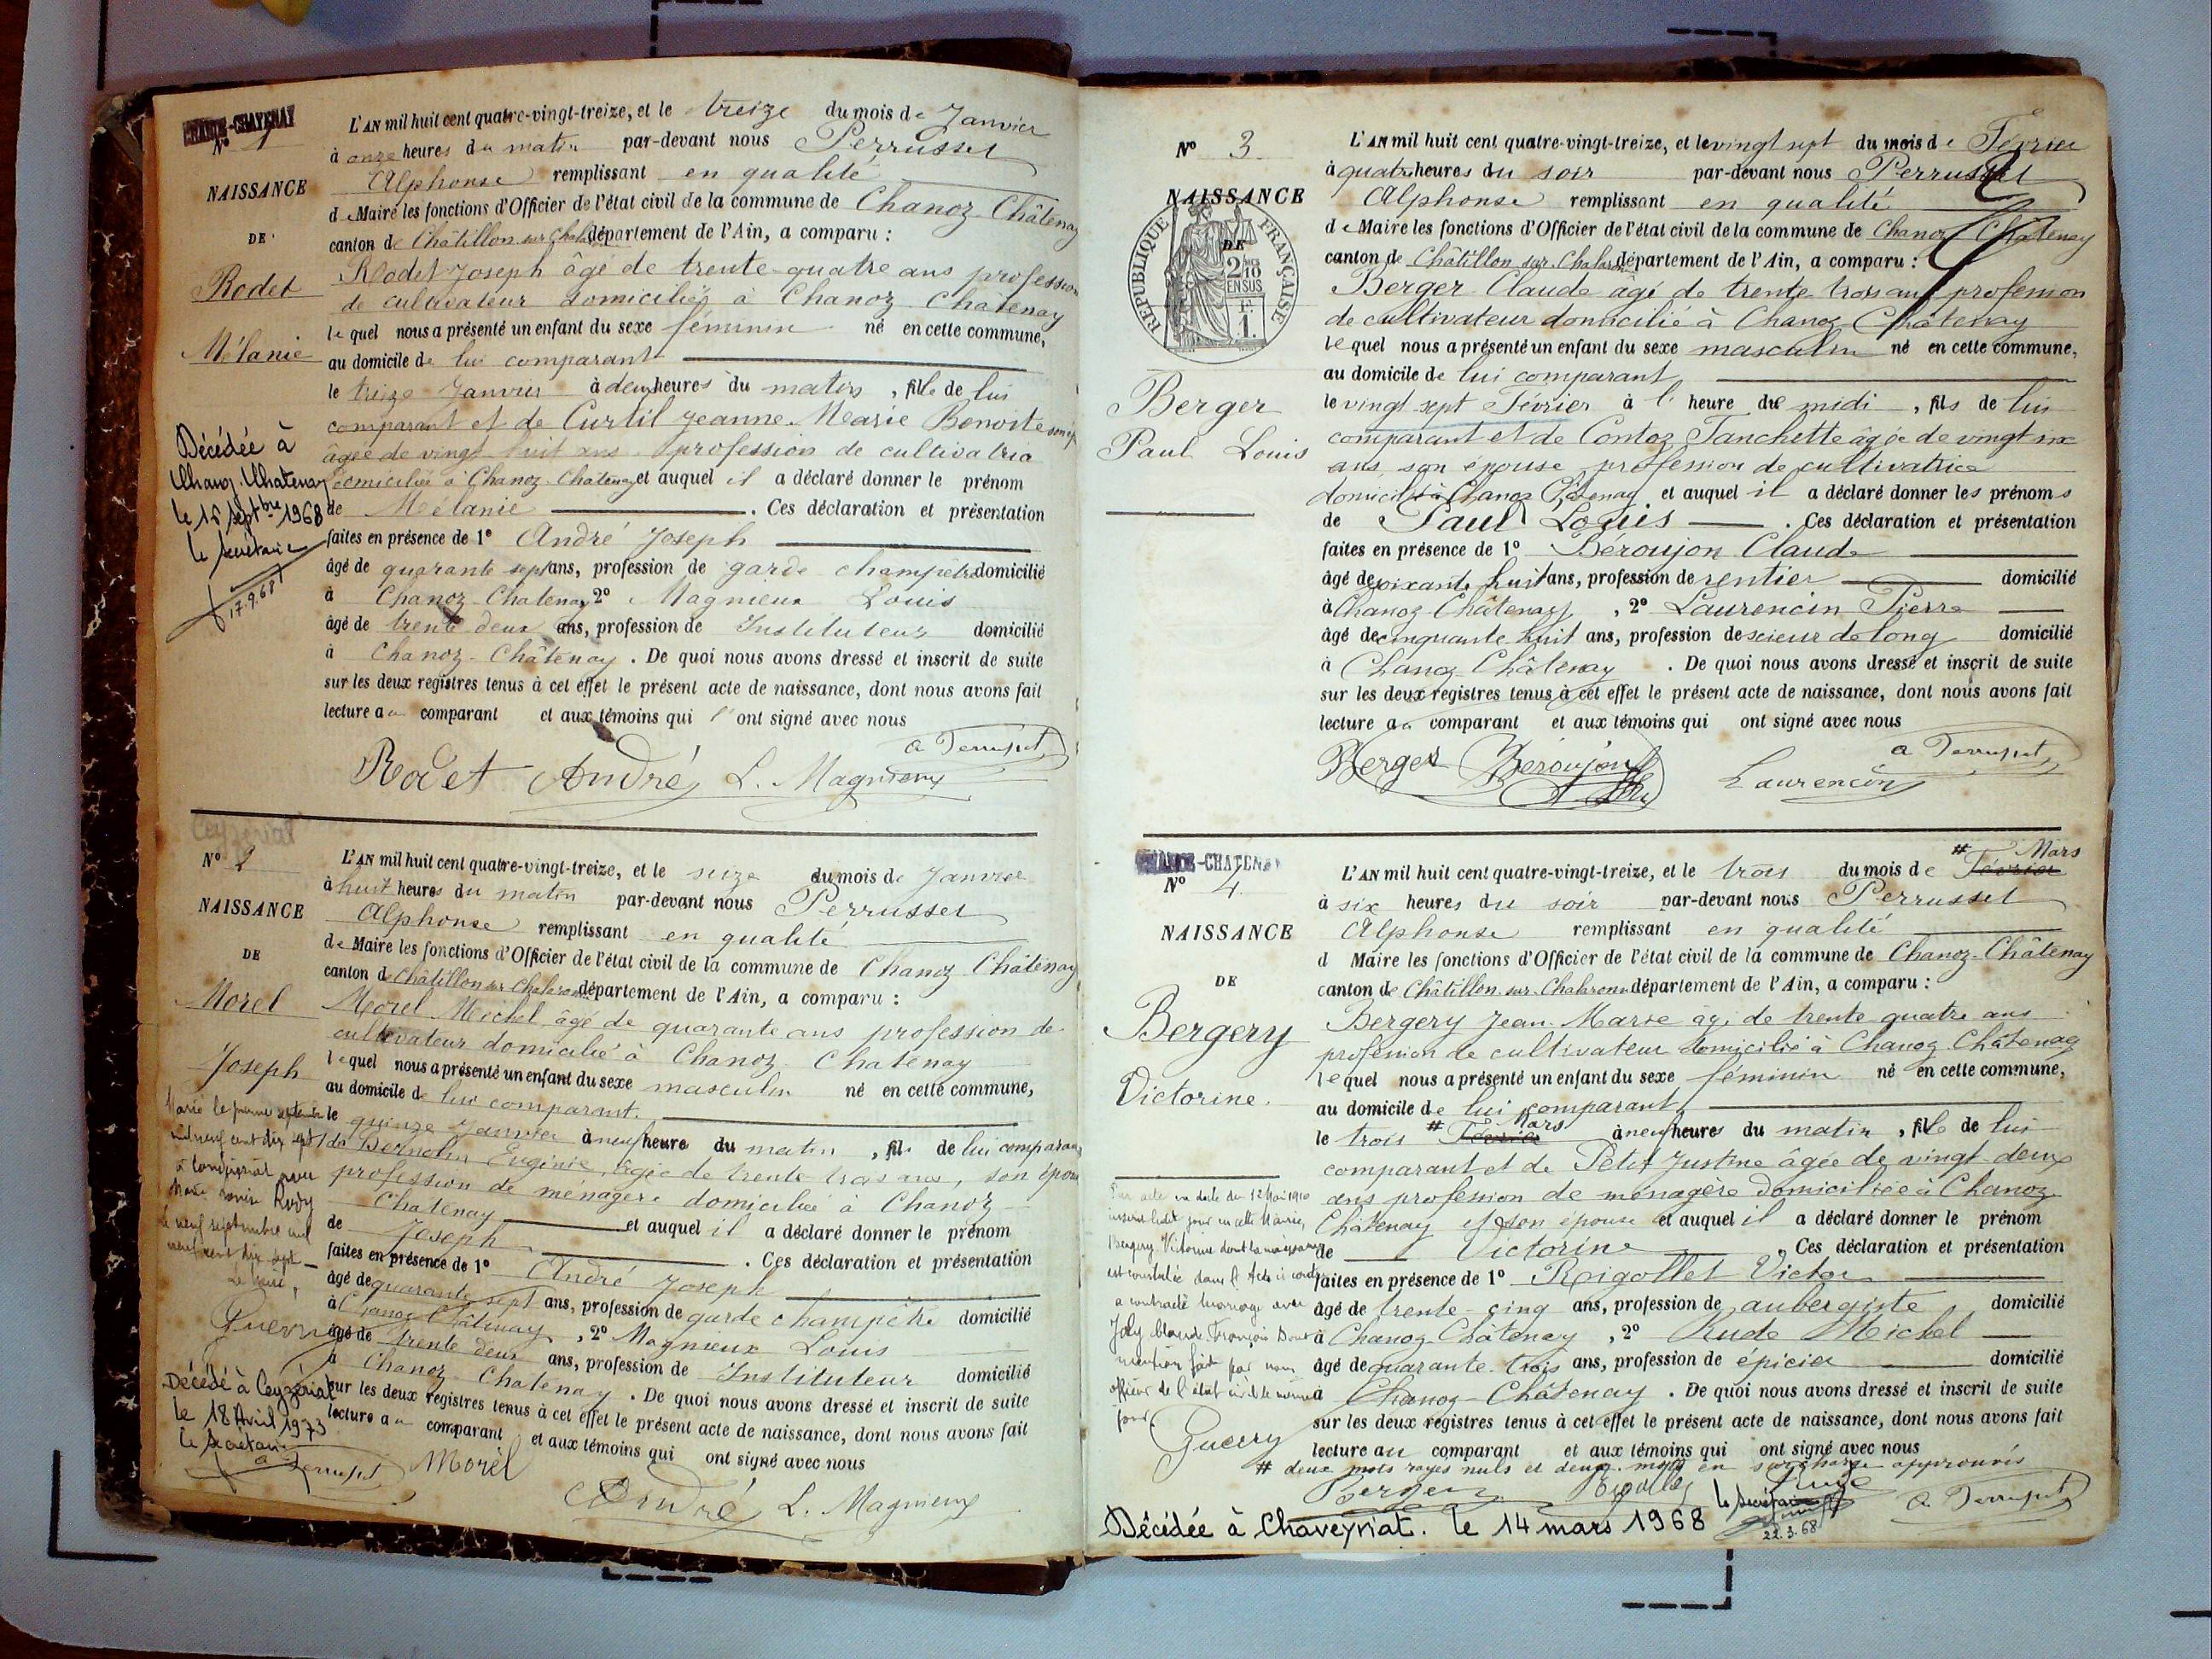 CHANOZ-CHATENAY
N° 1
NAISSANCE
DE
Rodet
Mélanie
Décédée à
Chanoz-Chatenay
le 16 Septbre 1968
le Secrétaire
17.9.68
L'AN mil huit cent quatre-vingt-treize, et le treize du mois de Janvier
à onze heures du matin par-devant nous Perrusset
Alphonse remplissant en qualité
de Maire les fonctions d'Officier de l'état civil de la commune de Chanoz-Châtenay
canton de Châtillon sur Chalaronne département de l'Ain, a comparu :
Rodet Joseph âgé de trente-quatre ans profession
de cultivateur domicilié à Chanoz-Chatenay
lequel nous a présenté un enfant du sexe féminin né en cette commune,
au domicile de lui comparant
le treize Janvier à deux heures du matin, fille de lui
comparant et de Curtil Jeanne-Marie Benoite son ép
âgée de vingt huit ans profession de cultivatrice
domiciliée à Chanoz-Châtenay et auquel il a déclaré donner le prénom
de Mélanie . Ces déclaration et présentation
faites en présence de 1° André Joseph
âgé de quarante sept ans, profession de garde champêtre domicilié
à Chanoz-Chatenay 2° Magnieux Louis
âgé de trente deux ans, profession de Instituteur domicilié
à Chanoz-Châtenay . De quoi nous avons dressé et inscrit de suite
sur les deux registres tenus à cet effet le présent acte de naissance, dont nous avons fait
lecture au comparant et aux témoins qui l' ont signé avec nous
a Perrusset
Rodet André L. Magnieux
Ceyzériat
N° 2
NAISSANCE
DE
Morel
Joseph
Marié le premier septembre
mil neuf cent dix sept
à avec
Marie
le neuf septembre mil
neuf cent dix sept
Le Maire,
Guerry
Décédé à Ceyzériat
le 18 Avril 1973
le Secrétaire
L'AN mil huit cent quatre-vingt-treize, et le seize du mois de Janvier
à huit heures du matin par-devant nous Perrusset
Alphonse remplissant en qualité
de Maire les fonctions d'Officier de l'état civil de la commune de Chanoz-Châtenay
canton de Châtillon sur Chalaronne département de l'Ain, a comparu :
Morel Michel âgé de quarante ans profession de
cultivateur domicilié à Chanoz-Chatenay
lequel nous a présenté un enfant du sexe masculin né en cette commune,
au domicile de lui comparant.
le quinze Janvier à neuf heure du matin, fils de lui comparant
de Bernolin Eugénie, âgée de trente-trois ans, son épouse
profession de ménagère domiciliée à Chanoz
Chatenay et auquel il a déclaré donner le prénom
de Joseph . Ces déclaration et présentation
faites en présence de 1° André Joseph
âgé de quarante sept ans, profession de garde champêtre domicilié
à Chanoz-Châtenay, 2° Magnieux Louis
âgé de trente deux ans, profession de Instituteur domicilié
à Chanoz-Chatenay . De quoi nous avons dressé et inscrit de suite
sur les deux registres tenus à cet effet le présent acte de naissance, dont nous avons fait
lecture au comparant et aux témoins qui ont signé avec nous
a Perrusset Morel
André L. Magnieux
N° 3
NAISSANCE
DE
RÉPUBLIQUE FRANÇAISE
2/10 EN SUS
1F.
Berger
Paul Louis
L'AN mil huit cent quatre-vingt-treize, et le vingt sept du mois de Février
à quatre heures du soir par-devant nous Perrusset
Alphonse remplissant en qualité
de Maire les fonctions d'Officier de l'état civil de la commune de Chanoz-Châtenay
canton de Châtillon-sur-Chalaronne département de l'Ain, a comparu :
Berger Claude âgé de trente trois ans profession
de cultivateur domicilié à Chanoz-Châtenay
lequel nous a présenté un enfant du sexe masculin né en cette commune,
au domicile de lui comparant
le vingt sept Février à l' heure de midi, fils de lui
comparant et de Contoz Fanchette âgée de vingt six
ans son épouse profession de cultivatrice
domiciliée à Chanoz Châtenay et auquel il a déclaré donner les prénoms
de Paul Louis . Ces déclaration et présentation
faites en présence de 1° Béroujon Claude
âgé de soixante huit ans, profession de rentier domicilié
à Chanoz-Châtenay, 2° Laurencin Pierre
âgé de cinquante huit ans, profession de scieur de long domicilié
à Chanoz-Châtenay . De quoi nous avons dressé et inscrit de suite
sur les deux registres tenus à cet effet le présent acte de naissance, dont nous avons fait
lecture au comparant et aux témoins qui ont signé avec nous
Berger Béroujon Laurencin a Perrusset
CHANOZ-CHATENAY
N° 4
NAISSANCE
DE
Bergery
Victorine.
Par acte en date du 12 Mai 1910
inscrit ledit jour en cette Mairie,
Bergery Victorine dont la naissance
est constatée dans l'Acte ci contre
a contracté mariage avec
Joly Claude-François Dont
mention faite par nous
officier de l'état civil le même
jour.
Guerry
L'AN mil huit cent quatre-vingt-treize, et le trois du mois de Février # Mars
à six heures du soir par-devant nous Perrusset
Alphonse remplissant en qualité
d Maire les fonctions d'Officier de l'état civil de la commune de Chanoz-Châtenay
canton de Châtillon-sur-Chalaronne département de l'Ain, a comparu :
Bergery Jean-Marie âgé de trente quatre ans
profession de cultivateur domicilié à Chanoz-Châtenay
lequel nous a présenté un enfant du sexe féminin né en cette commune,
au domicile de lui comparant
le trois # Février Mars à neuf heures du matin, fille de lui
comparant et de Petit Justine âgée de vingt-deux
ans profession de ménagère domiciliée à Chanoz
Châtenay et son épouse et auquel il a déclaré donner le prénom
de Victorine . Ces déclaration et présentation
faites en présence de 1° Rigollet Victor
âgé de trente-cinq ans, profession de aubergiste domicilié
à Chanoz-Châtenay, 2° Rude Michel
âgé de quarante-trois ans, profession de épicier domicilié
à Chanoz-Châtenay . De quoi nous avons dressé et inscrit de suite
sur les deux registres tenus à cet effet le présent acte de naissance, dont nous avons fait
lecture au comparant et aux témoins qui ont signé avec nous
# deux mots rayés nuls et deux mots en surcharge approuvés
Rigollet Rude
a Perrusset
Décédée à Chaveyriat. le 14 mars 1968
le Secrétaire
22.3.68